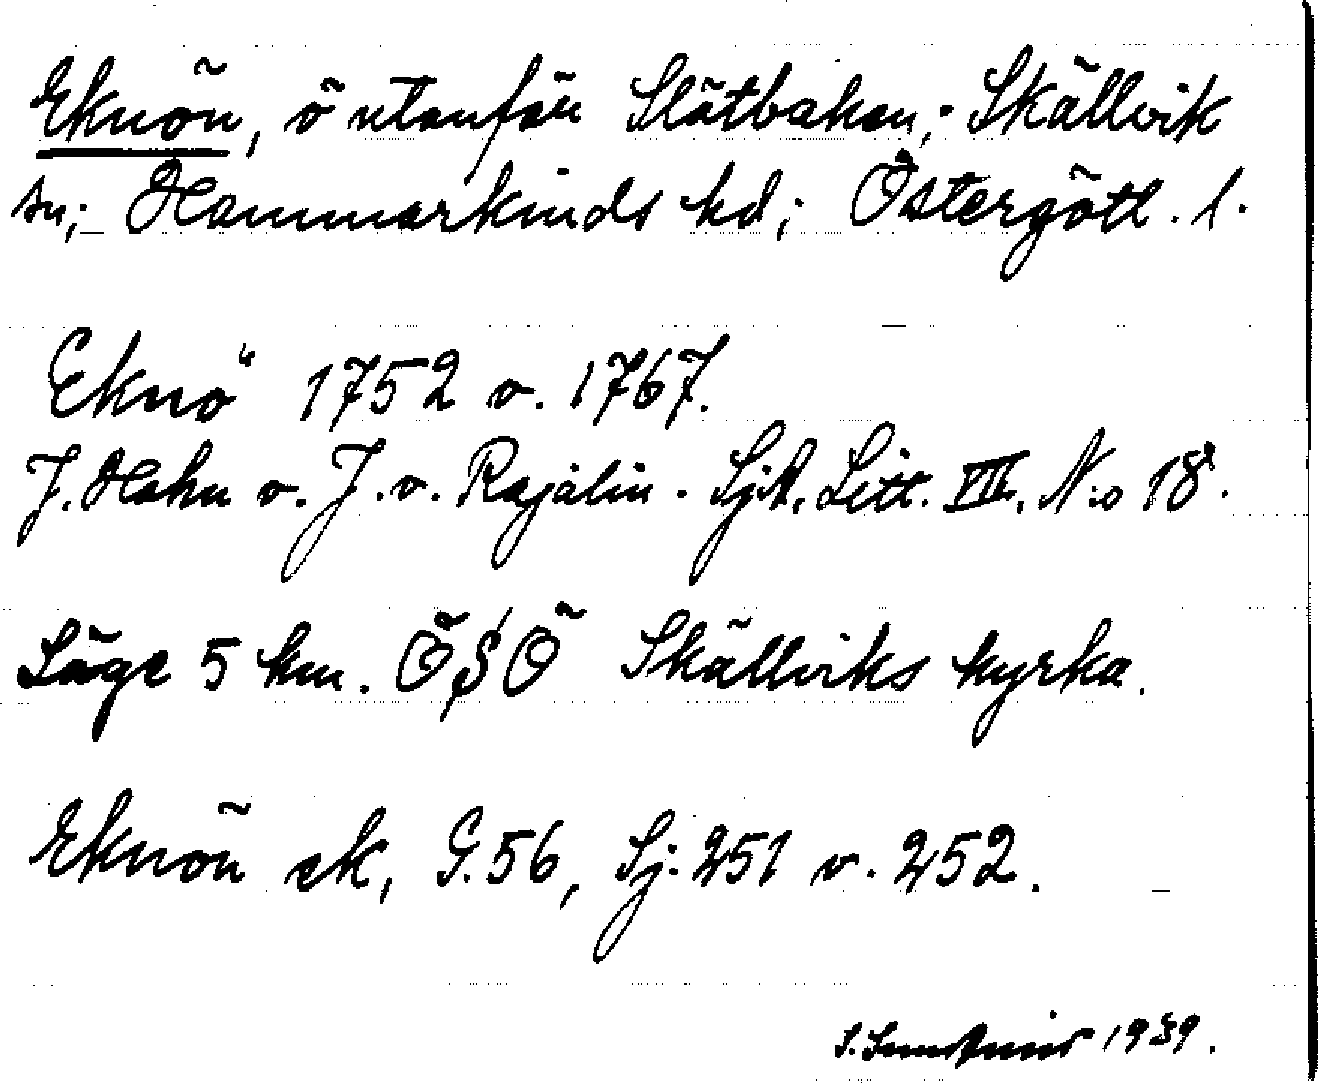 Eknön, ö utanför Slätbaken; Skällvik
sn; Hammarkinds hd; Östergötl. l.
Eknö 1752 o. 1767.
J. Hahn o. J. v. Rajalin. SjA. Litt. VII. N:o 18.
Läge 5 km. ÖSÖ Skällviks kyrka.
Eknön ek, G. 56, Sj. 251 o. 252.
S. 1939.